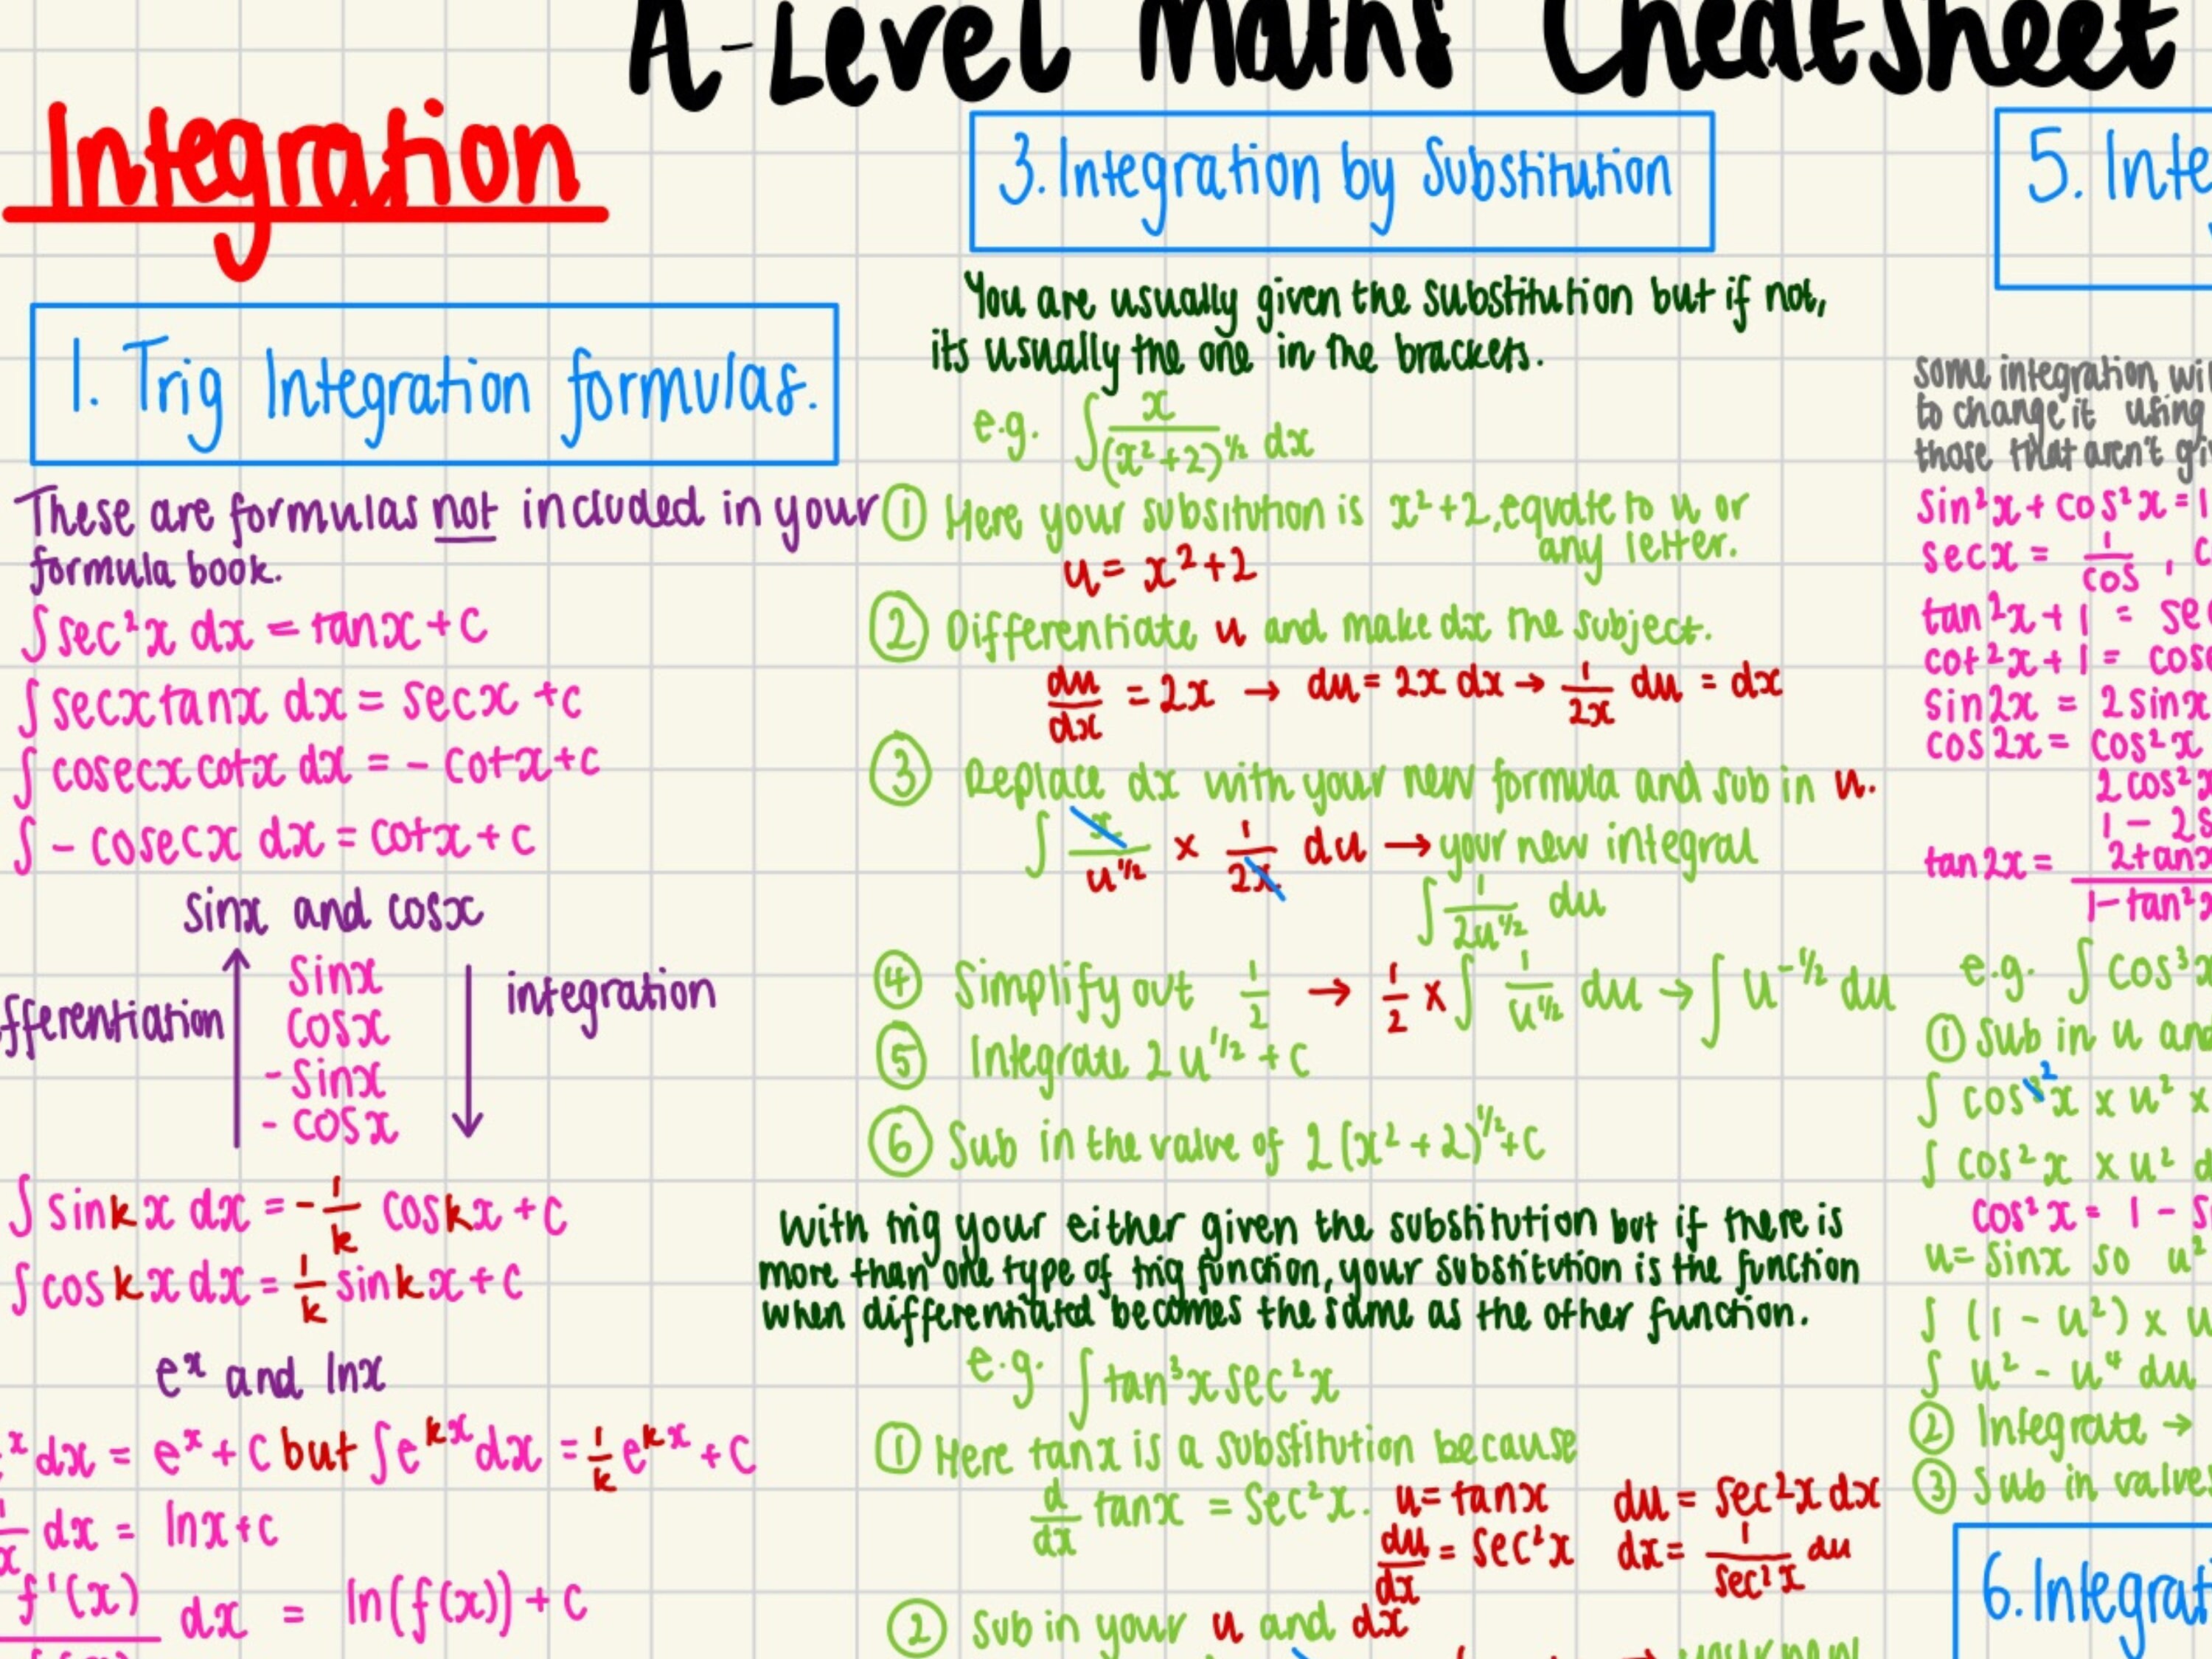 A-Level Maths Cheatsheet
Integration
1. Trig Integration formulas.
These are formulas not included in your
formula book.
∫sec²x dx = tanx+c
∫secxtanx dx = secx +c
∫cosecxcotx dx = - cotx+c
∫- cosecx dx = cotx+c
sinx and cosx
sinx
cosx
-sinx
- cosx
fferentiation
integration
∫sinkx dx = -1/k coskx+c
∫coskx dx = 1/k sinkx+c
eˣ and lnx
ˣdx = eˣ + c but ∫eᵏˣdx = 1/k eᵏˣ + c
1/x dx = lnx+c
f'(x) dx = ln(f(x)) + c
3. Integration by Substitution
You are usually given the substitution but if not,
its usually the one in the brackets.
e.g. ∫x/(x²+2)^½ dx
① Here your subsitution is x²+2, equate to u or
any letter.
u = x²+2
② Differentiate u and make dx the subject.
du/dx = 2x → du = 2x dx → 1/2x du = dx
③ Replace dx with your new formula and sub in u.
∫x/u^½ × 1/2x du → your new integral
∫1/2u^½ du
④ Simplify out 1/2 → 1/2 × ∫1/u^½ du → ∫u^-½ du
⑤ Integrate 2u^½ + c
⑥ Sub in the value of 2(x²+2)^½+c
With trig your either given the substitution but if there is
more than one type of trig function, your substitution is the function
when differentiated becomes the same as the other function.
e.g. ∫tan³xsec²x
① Here tanx is a substitution because
d/dx tanx = sec²x. u = tanx du = sec²x dx
du/dx = sec²x dx = 1/sec²x du
② Sub in your u and dx
your new
5. Inte
some integration wi
to change it using
those that aren't gi
sin²x + cos²x = 1
secx = 1/cos , c
tan²x + 1 = se
cot²x + 1 = cose
sin2x = 2sinx
cos2x = cos²x
2cos²x
1 - 2s
tan2x = 2tanx/1-tan²x
e.g. ∫cos³x
① Sub in u and
∫cos³²x × u² ×
∫cos²x × u² d
cos²x = 1 - s
u = sinx so u²
∫(1 - u²) × u
∫u² - u⁴ du
② Integrate →
③ Sub in values
6. Integrat